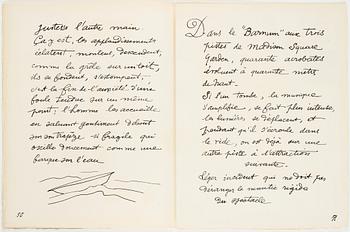 justers l'autre main
Ca y est, les applaudissements
éclatent, montent, descendent,
comme la grêle sur un toit,
ils se fondent, s'estompent,
c'est la fin de l'anxiété d'une
foule tendue sur un même
point, l'homme les accueille
en saluant gentiment debout
son trapèze si fragile qui
oscille doucement comme une
barque sur l'eau
50
Dans le "Barnum" aux trois
pistes de Madison Square
Garden, quarante acrobates
évoluent à quarante mètres
de haut.
Si l'un tombe, la musique
s'amplifie, se fait plus intense,
les lumières se déplacent, et
pendant qu'il s'écroule dans
le vide, on est déjà sur une
autre piste à l'attraction
suivante.
Léger incident qui ne doit pas
déranger la montée rigide
du spectacle